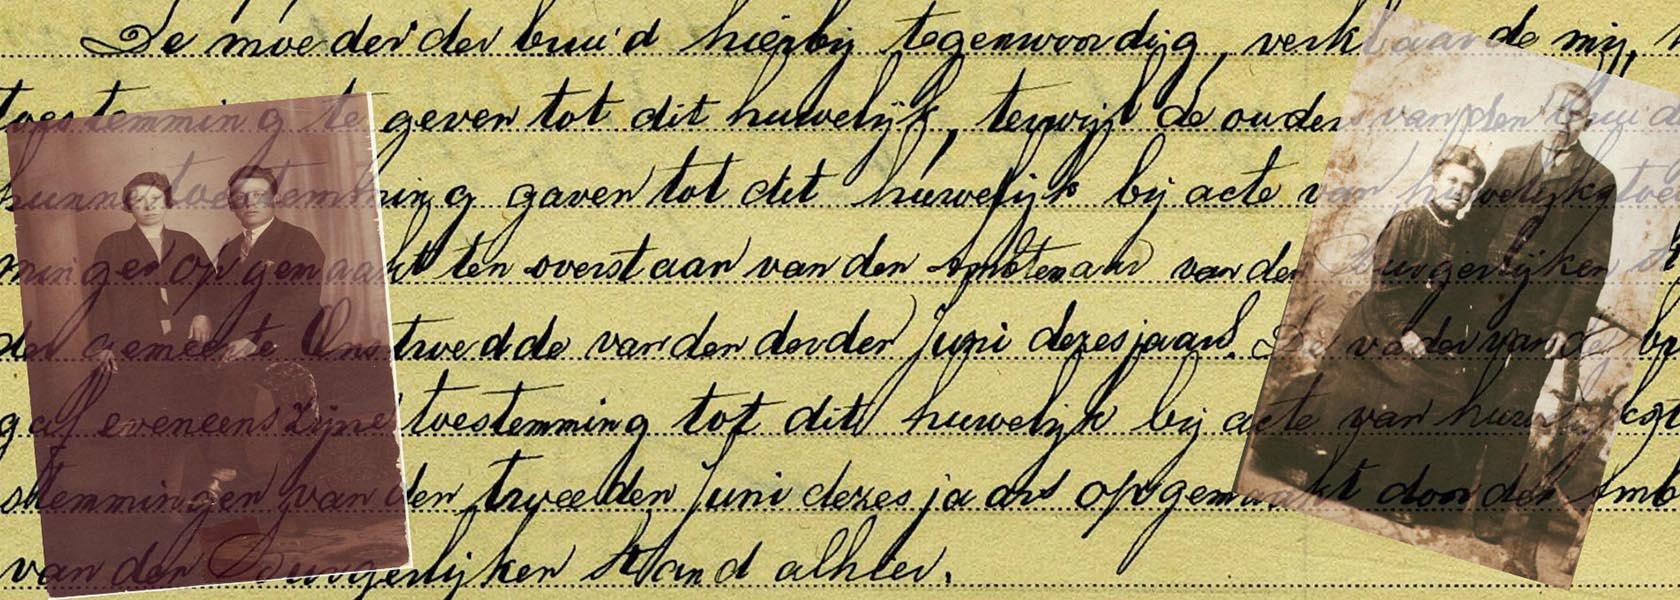 De moeder der bruid hierbij tegenwoordig, verklaarde mij,
toestemming te geven tot dit huwelijk, terwijl de ouders van den
hunne toestemming gaven tot dit huwelijk bij acte van huwelijkstoe
mingen opgemaakt ten overstaan van den Ambtenaar van den Burgerlijken
der gemeente Onstwedde van den derden Juni dezes jaars. De vader van de
gaf eveneens zijne toestemming tot dit huwelijk bij acte van
stemmingen van den tweeden Juni dezes jaars opgemaakt door den Amb
van den Burgerlijken Stand alhier.